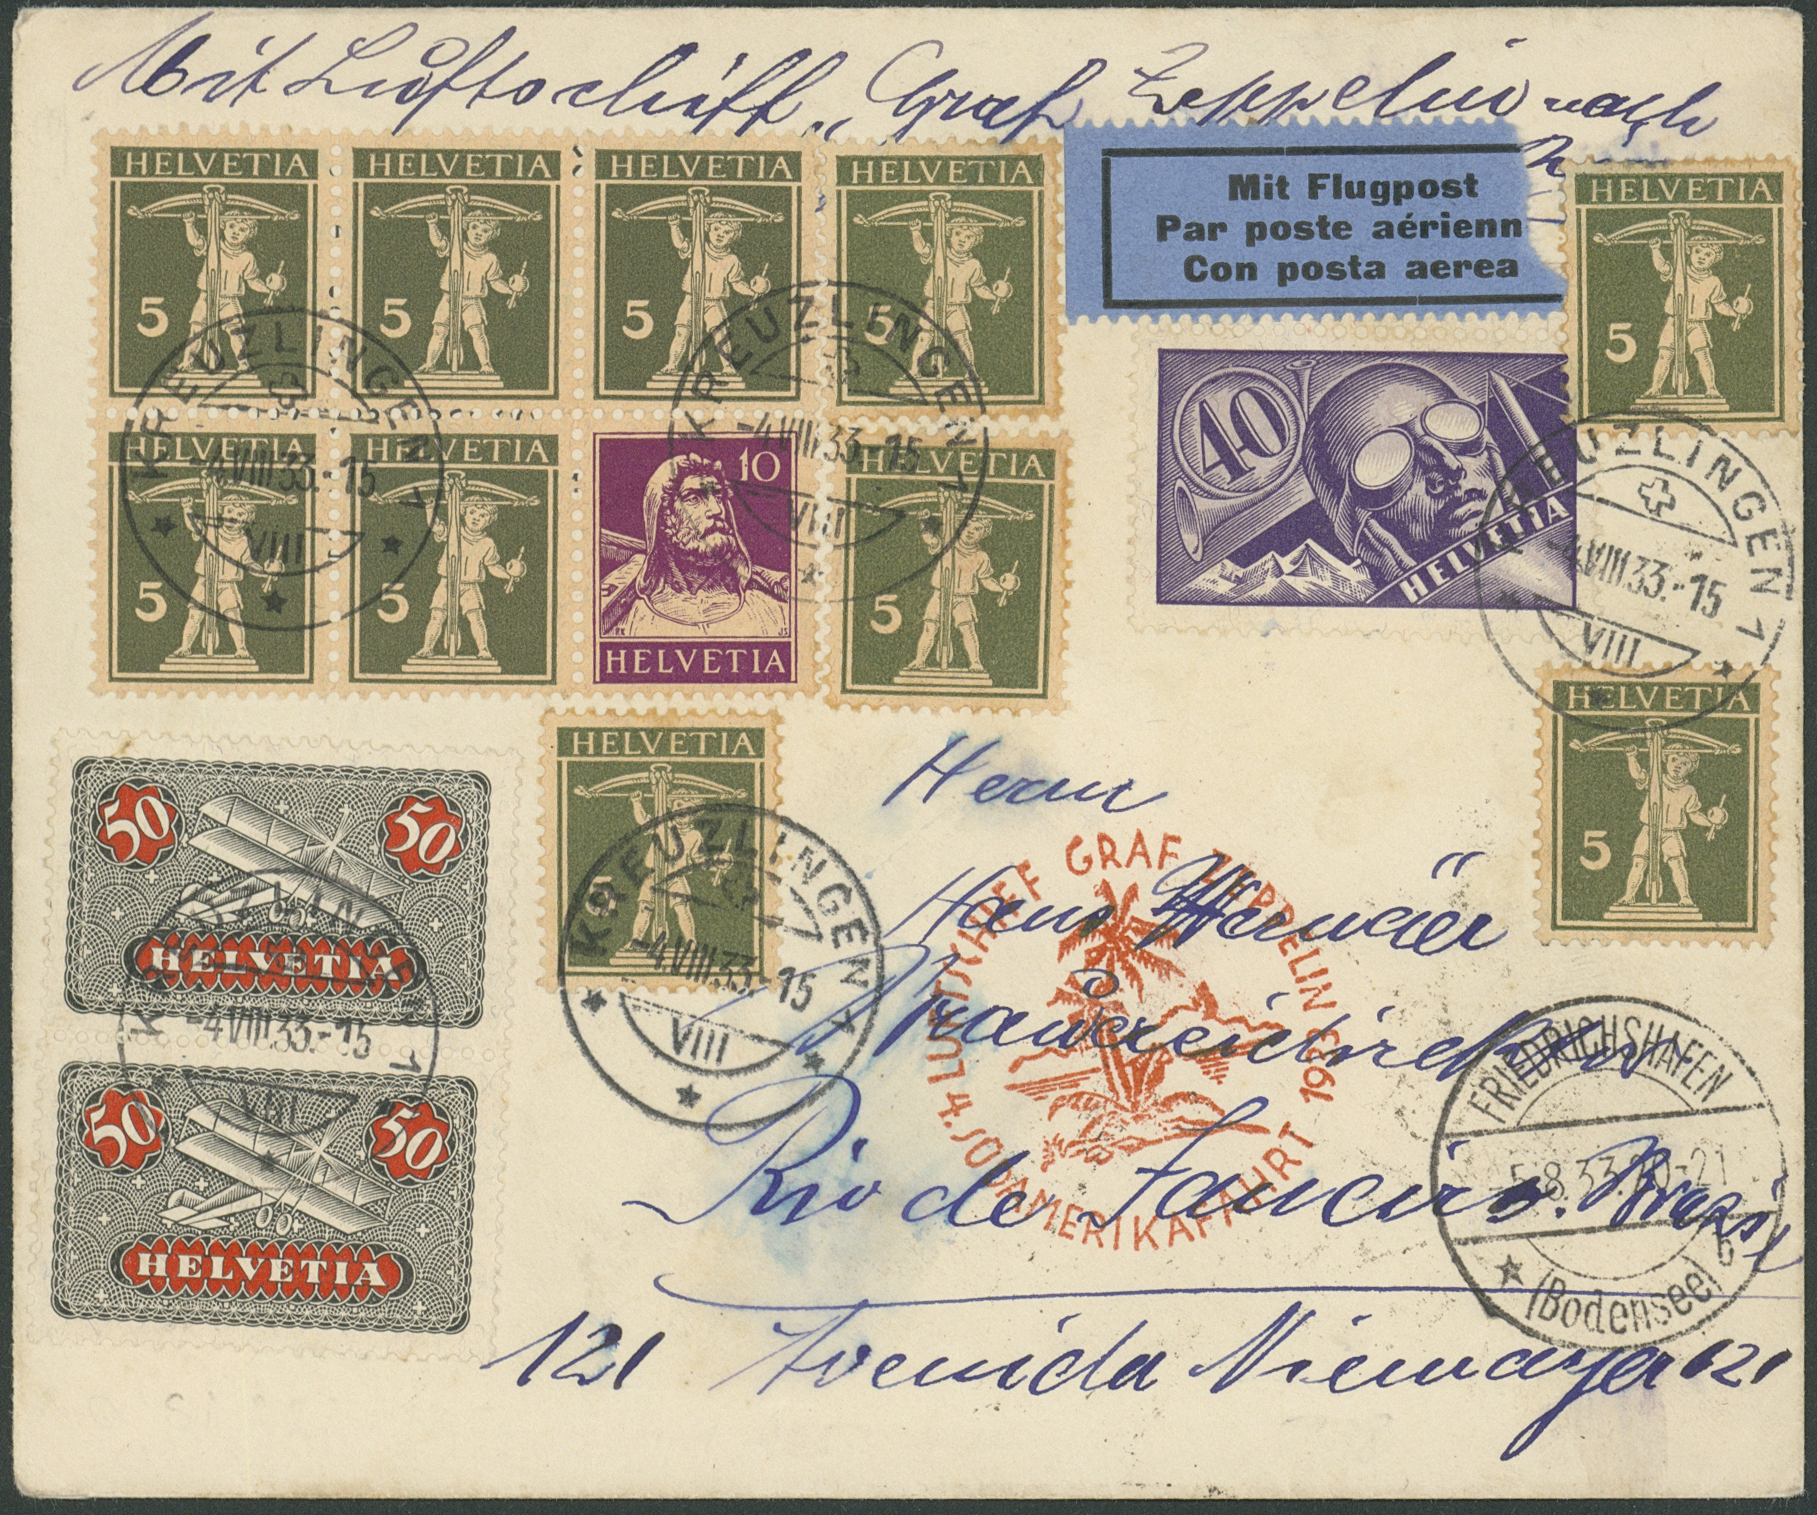 Mit Luftschiff „Graf Zeppelin nach
HELVETIA 5
HELVETIA 5
HELVETIA 5
HELVETIA 5
Mit Flugpost
Par poste aérienn
Con posta aerea
HELVETIA 5
HELVETIA 5
HELVETIA 5
10 HELVETIA
HELVETIA 5
40 HELVETIA
KREUZLINGEN 1
-4.VIII.33.-15
VIII
KREUZLINGEN 1
-4.VIII.33.-15
VIII
KREUZLINGEN 1
-4.VIII.33.-15
VIII
HELVETIA 5
HELVETIA 5
50 50
HELVETIA
50 50
HELVETIA
KREUZLINGEN 1
-4.VIII.33.-15
VIII
KREUZLINGEN 1
-4.VIII.33.-15
VIII
Herrn
Hans
Rio de Janeiro. Brasil
121 Avenida Niemayer 121
LUFTSCHIFF GRAF ZEPPELIN 1933
4. SÜDAMERIKAFAHRT
FRIEDRICHSHAFEN
5.8.33.20-21
b
(Bodensee)